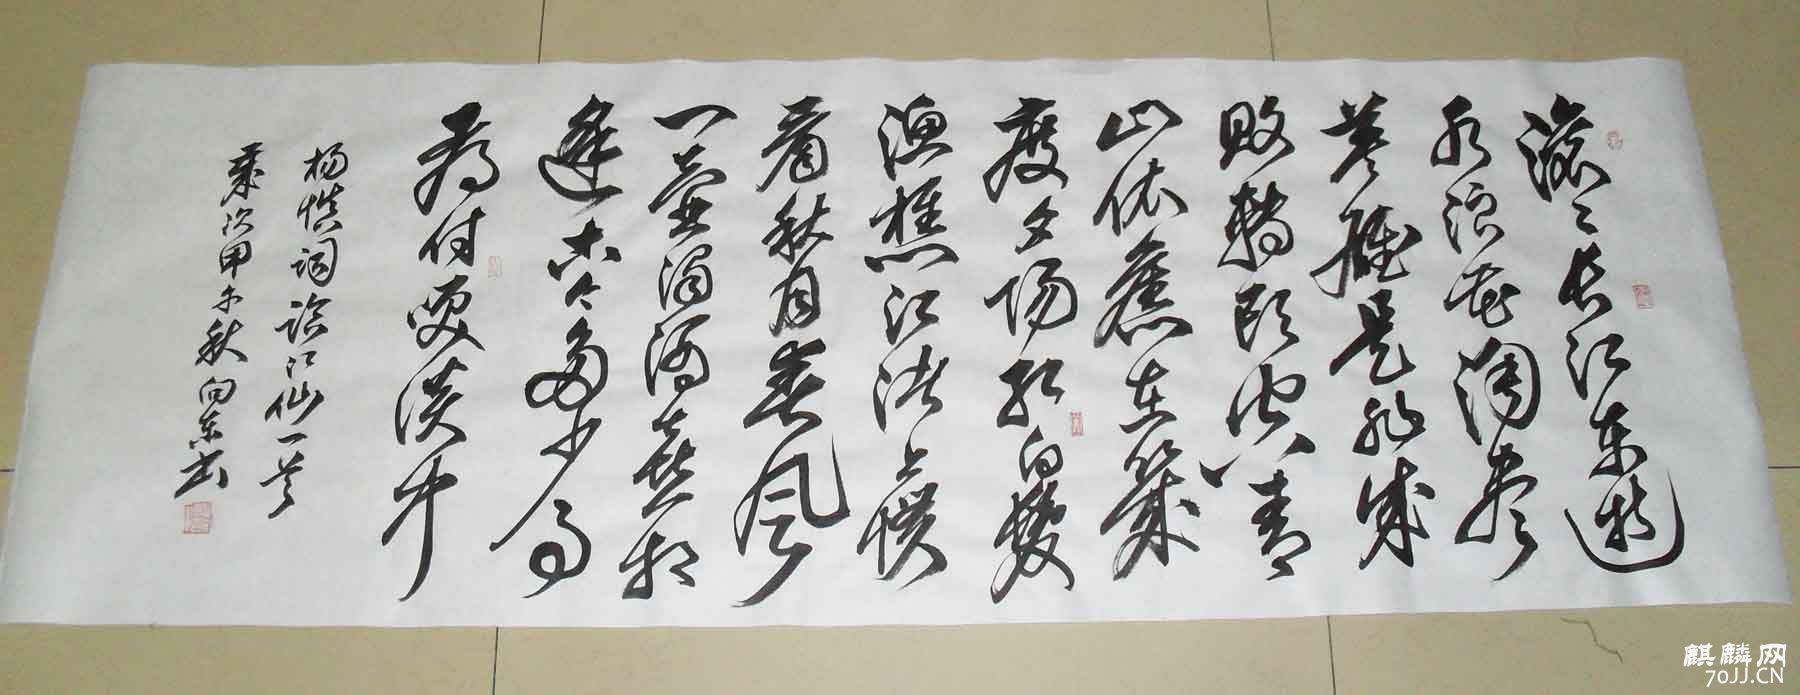 滚々长江东逝
水浪花淘尽
英雄是非成
败转头空青
山依舊在幾
度夕阳红白髮
渔樵江渚上惯
看秋月春风
一壶浊酒喜相
逢古今多少事
都付笑谈中
杨慎词临江仙一首
岁次甲午秋向东书
麒麟网
70JJ.CN